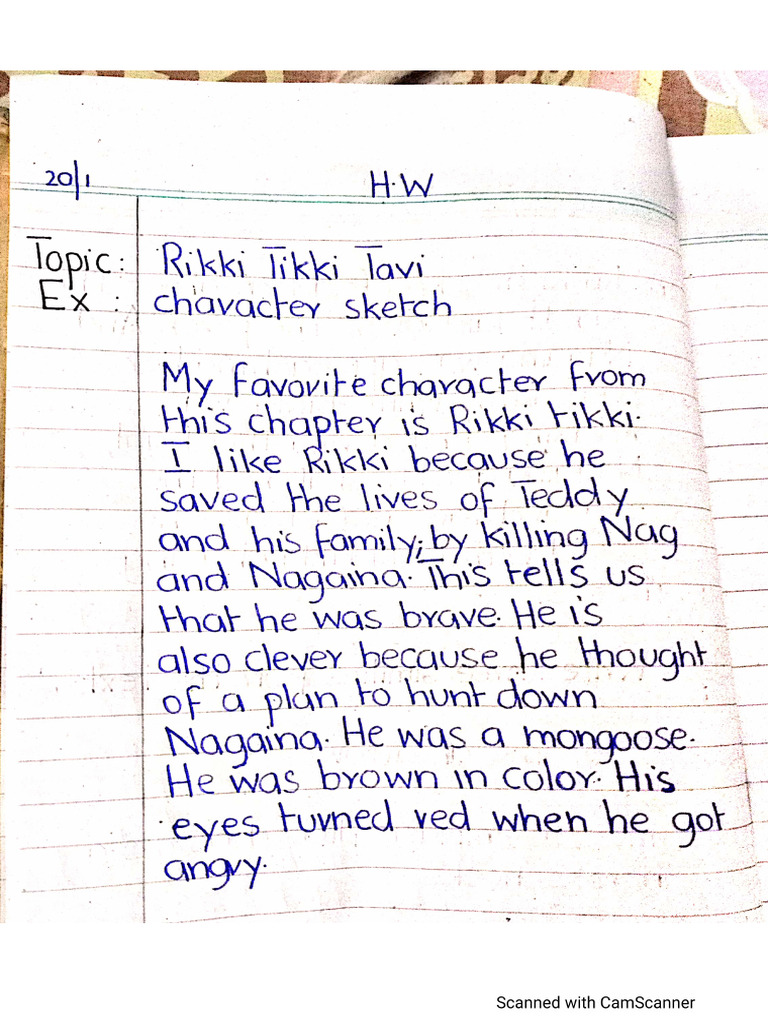 20/1 H.W
Topic: Rikki Tikki Tavi
Ex : character sketch
My favorite character from
this chapter is Rikki tikki.
I like Rikki because he
saved the lives of Teddy
and his family; by killing Nag
and Nagaina. This tells us
that he was brave. He is
also clever because he thought
of a plan to hunt down
Nagaina. He was a mongoose.
He was brown in color. His
eyes turned red when he got
angry.
Scanned with CamScanner